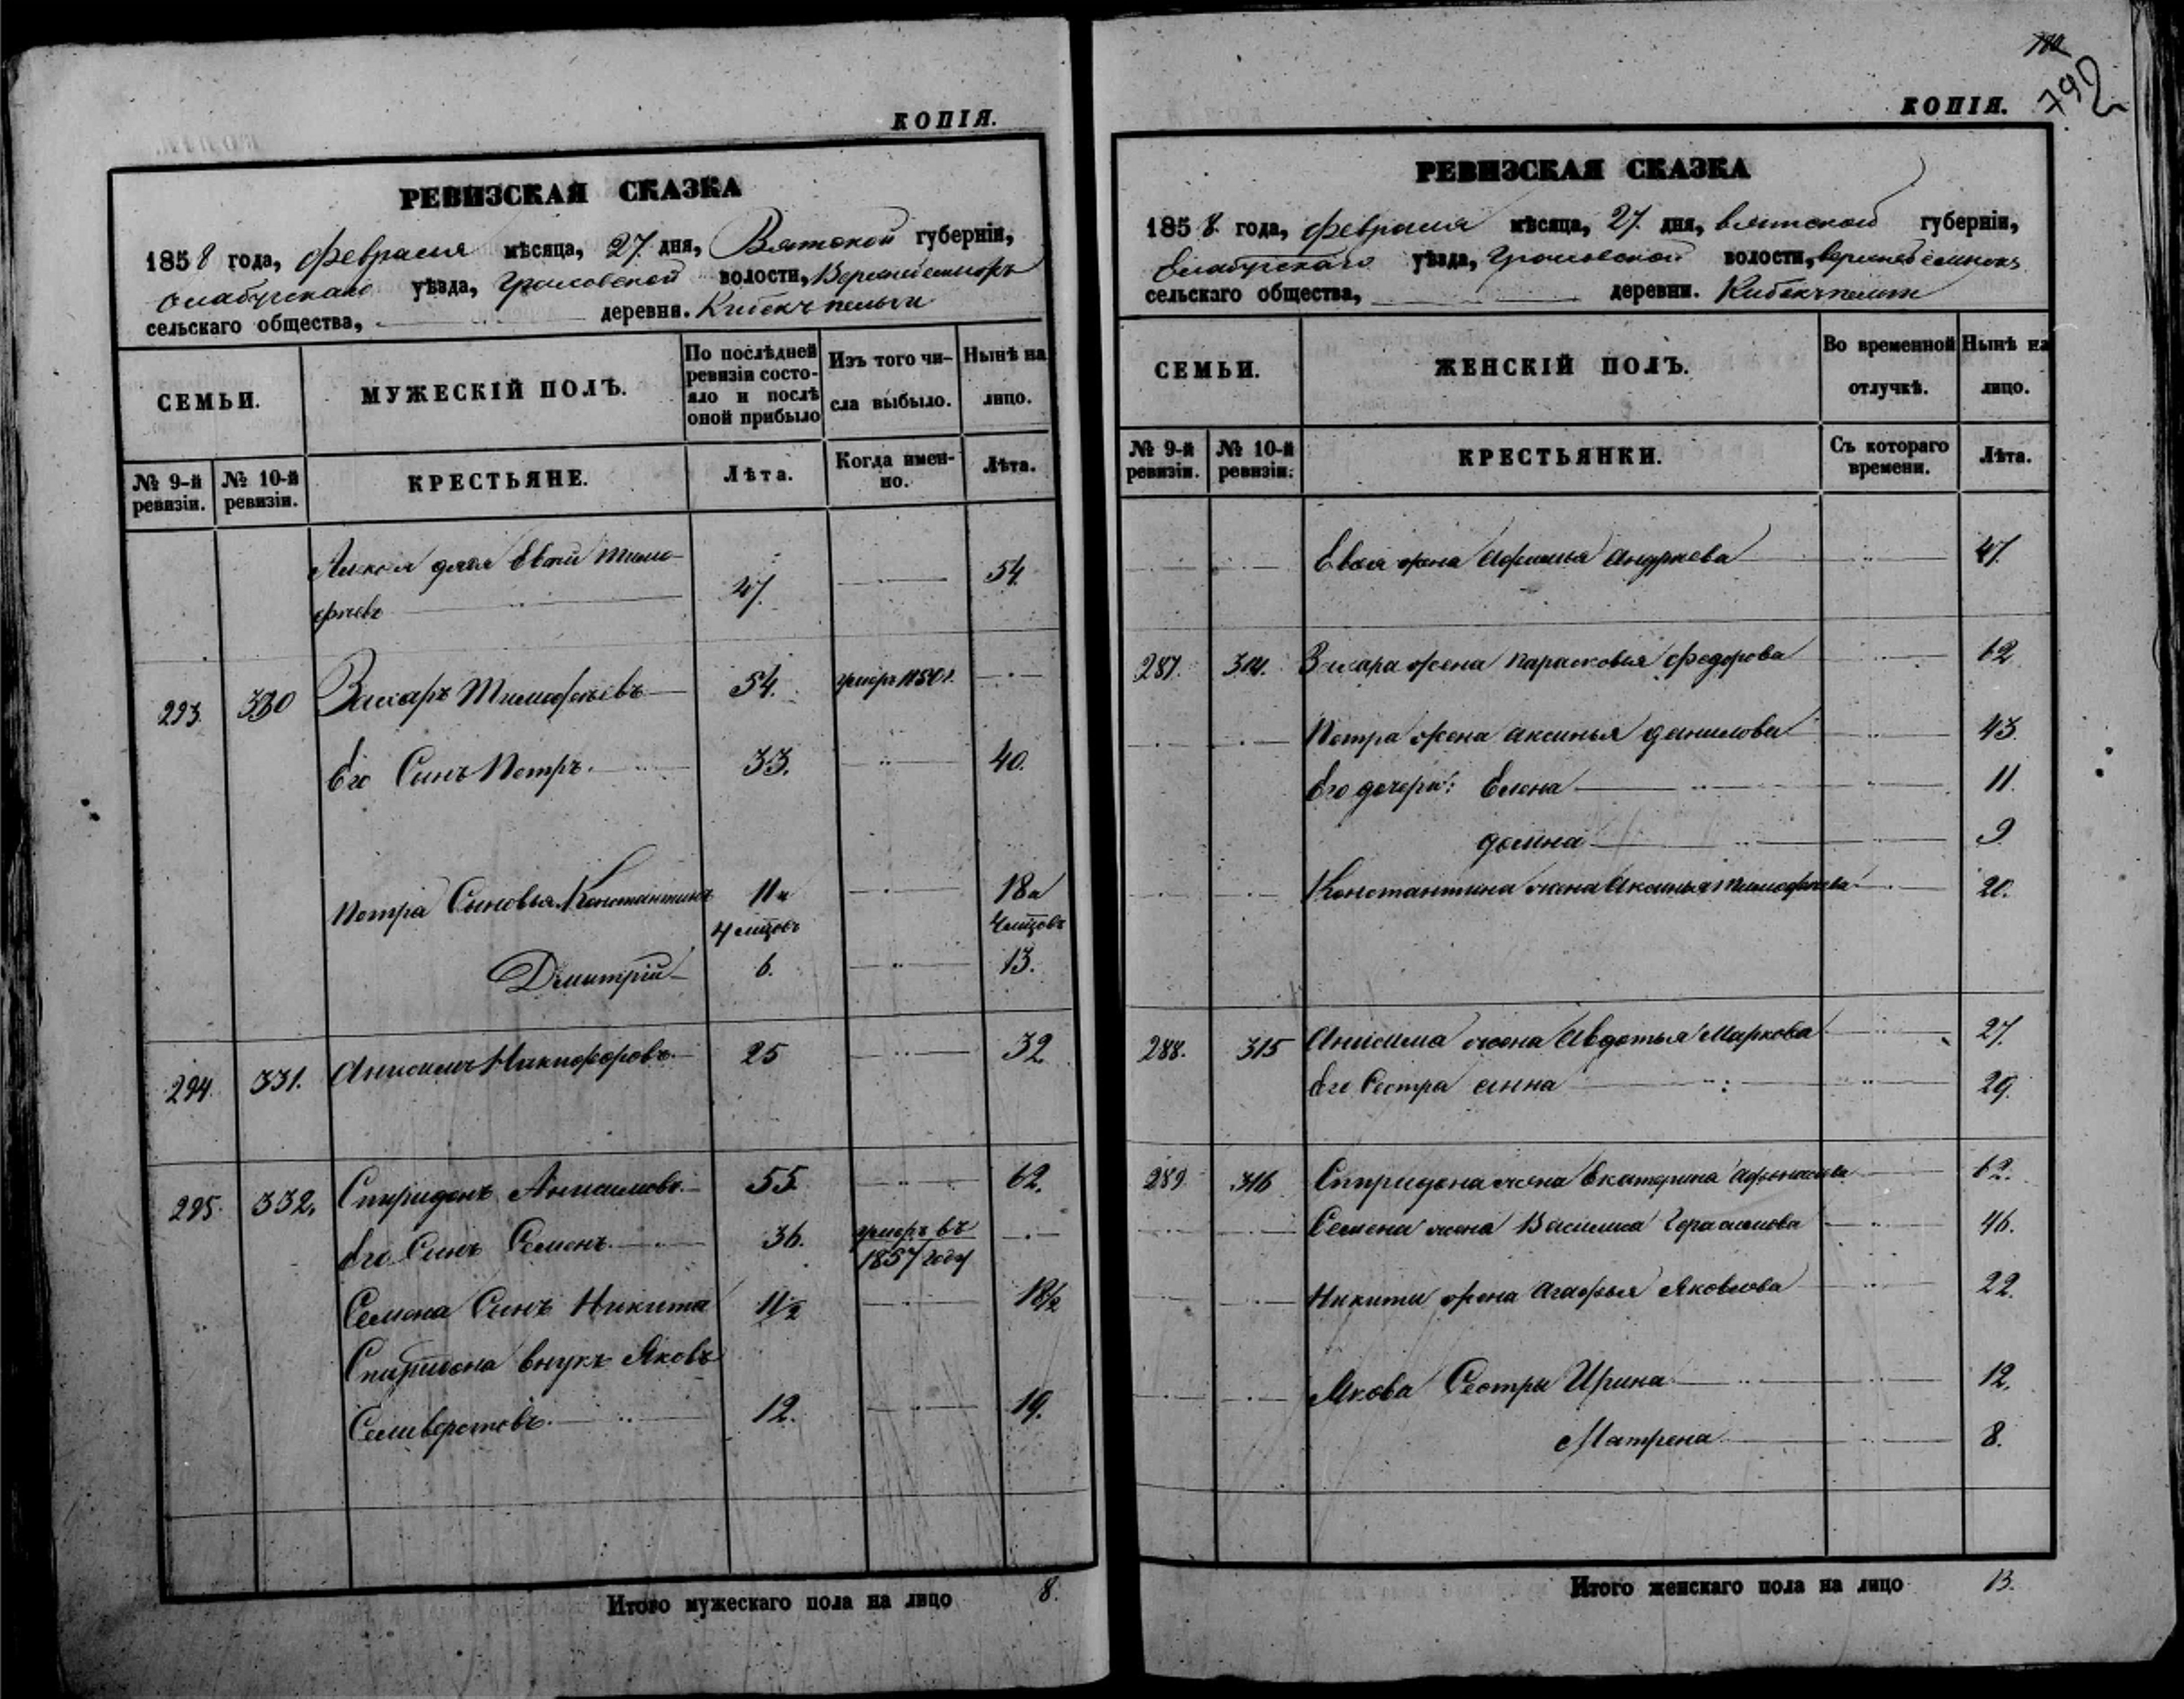 КОПІЯ.
РЕВИЗСКАЯ СКАЗКА
1858 года, февраля мѣсяца, 27. дня, Вятской губерніи,
Елабугскаго уѣзда, волости,
сельскаго общества, деревни.
СЕМЬИ.
МУЖЕСКІЙ ПОЛЪ.
По послѣдней ревизіи состояло и послѣ оной прибыло
Изъ того числа выбыло.
Нынѣ на лицо.
№ 9-й ревизіи.
№ 10-й ревизіи.
КРЕСТЬЯНЕ.
Лѣта.
Когда именно.
Лѣта.
Алексѣя дядя Евсей Тимо-
фѣевъ 47. 54.
293. 330 Захаръ Тимофѣевъ 54. умеръ 1850 г.
Его Сынъ Петръ. 33. 40.
Петра Сыновья Константинъ 11 и 18 и
4 мѣсцовъ 4 мѣсцовъ
Дмитрій 6. 13.
294. 331. Анисимъ Никифоровъ. 25 32
295. 332. Спиридонъ Анисимовъ. 55. 62.
Его Сынъ Семенъ. 36. умеръ въ
1857 году
Семена Сынъ Никита 11½ 18½
Спиридона внукъ Яковъ
Селиверстовъ. 12. 19.
Итого мужескаго пола на лицо 8.
792
КОПІЯ.
РЕВИЗСКАЯ СКАЗКА
1858 года, февраля мѣсяца, 27. дня, Вятской губерніи,
Елабугскаго уѣзда, волости,
сельскаго общества, деревни.
СЕМЬИ.
ЖЕНСКІЙ ПОЛЪ.
Во временной отлучкѣ.
Нынѣ на лицо.
№ 9-й ревизіи.
№ 10-й ревизіи.
КРЕСТЬЯНКИ.
Съ котораго времени.
Лѣта.
Евсея жена Афимья Андреева 47.
287. 314. Захара жена Парасковья Федорова 62
Петра жена Аксинья Данилова 43.
Его дочери: Елена 11.
Домна 9
Константина жена Аксинья Тимофеева 20.
288. 315 Анисима жена Авдотья Маркова 27.
Его Сестра Анна 29.
289. 316 Спиридона жена Екатерина Афонасьева 62.
Семена жена Василиса Герасимова 46.
Никиты жена Агафья Яковлева 22.
Якова Сестры Ирина 12.
Матрена 8.
Итого женскаго пола на лицо 13.